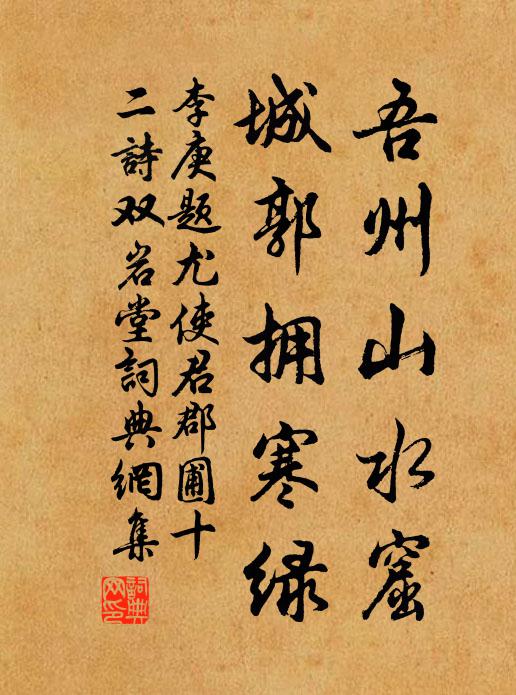 吾州山水窟
城郭拥寒绿
李庚题尤使君郡圃十
二詩双岩堂詞典網集
詞典网印